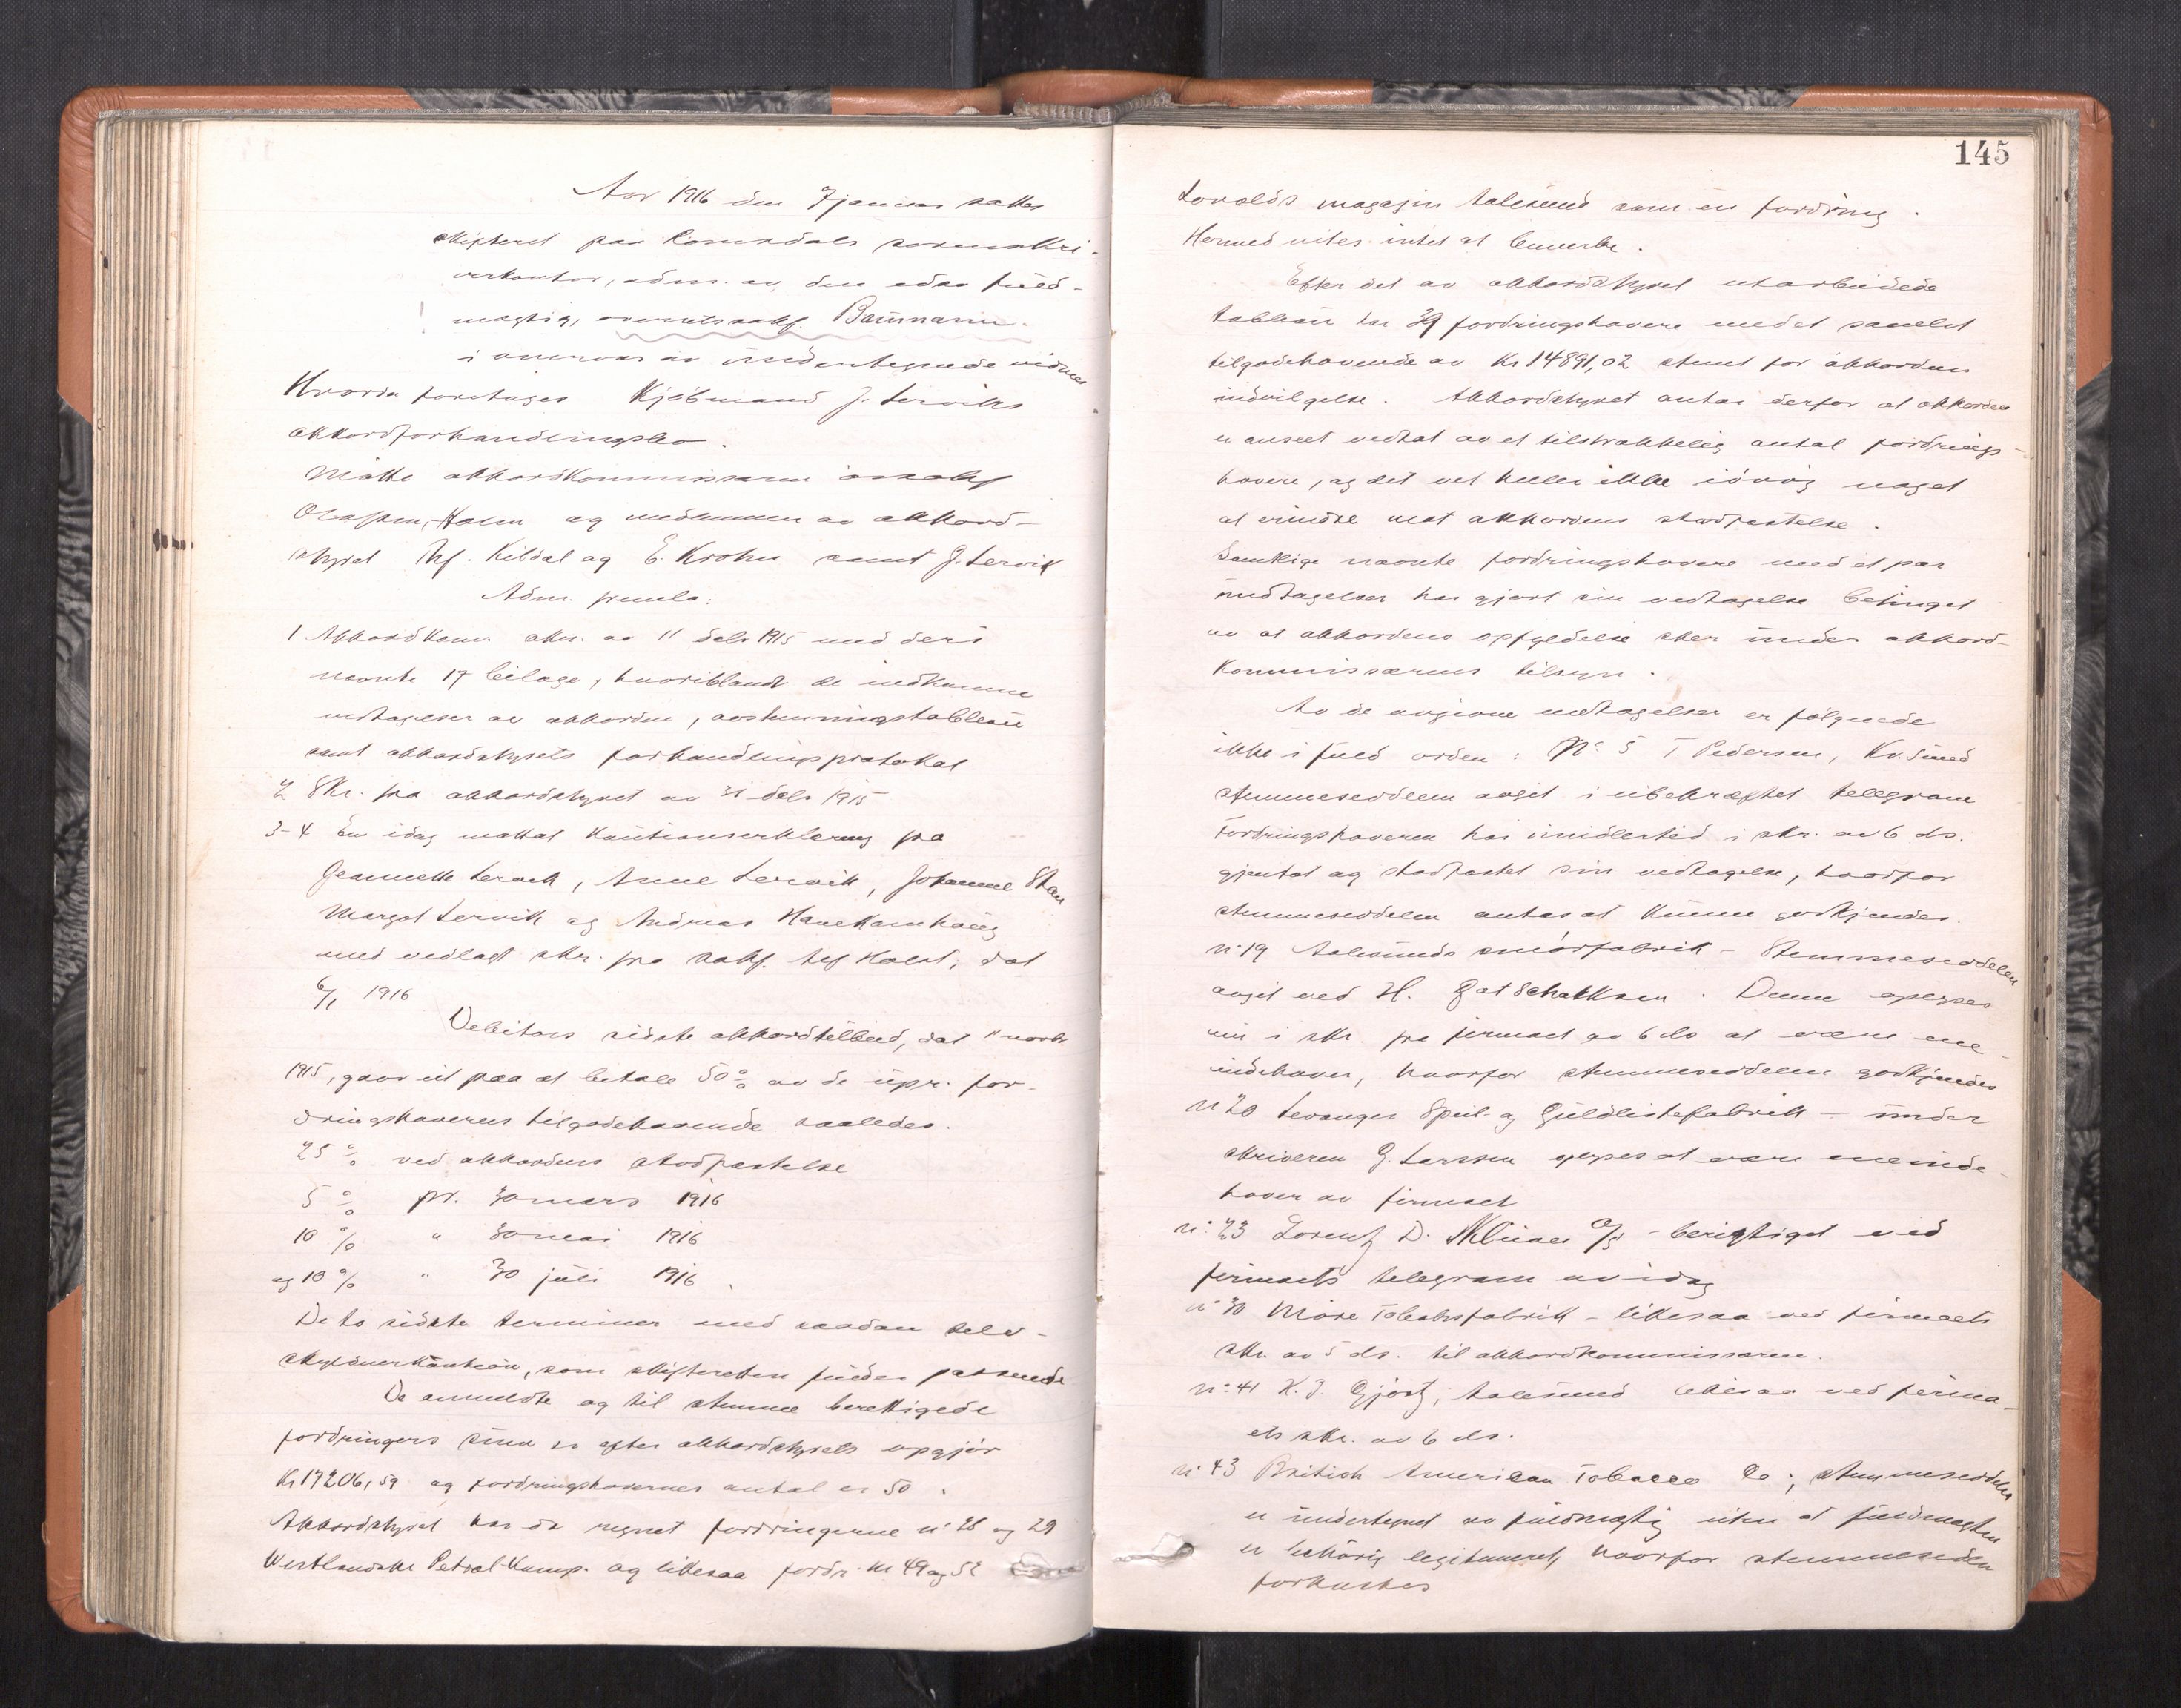 Aar 1916 den 7 januar sattes
skifteret paa Romsdals sorenskri-
verkontor, adm. av den edsv. fuld-
mægtig, overretssakf. Baumann.
i overvær av undertegnede vidner
Hvorda foretages Kjøbmand J. Lerviks
akkordforhandlingsbo.
Møtte akkordkommissæren o.r.sakf.
Holm og medlemmer av akkord-
styret Thf. Kildal og E. Krohn samt J. Lervik
Adm. fremla:
1 Akkordkom. skr. av 11 dcbr 1915 med deri
nævnte 17 bilage, hvoriblandt de indkomne
vedtagelser av akkorden, avstemningstableau
samt akkordstyrets forhandlingsprotokol
2 Skr. fra akkordstyret av 31 dcbr 1915
3-4 En idag mottat kautionserklæring fra
Jeannette Lervik, Anne Lervik, Johanne Sten
Margot Lervik og Andreas Hanekamhaug
med vedlagt skr. fra sakf. Holst, dat
6/1 1916
Debitors sidste akkordtilbud, dat 11 novbr
1915, gaar ut paa at betale 50 % av de upr. for-
dringshaveres tilgodehavende saaledes.
25 % ved akkordens stadfæstelse
5 % pr. 30 mars 1916
10 % " 30 mai 1916
og 10 % " 30 juli 1916.
De to sidste terminer med saadan selv-
skyldnerkaution, som skifteretten finder passende
De anmeldte og til stemme berettigede
fordringers sum er efter akkordstyrets opgjør
Kr 17206,59 og fordringshavernes antal er 50.
Akkordstyret har da regnet fordringerne nr 28 og 29
Vestlandske Petrol-Komp. og likesaa fordr. nr 49 og 52
145
Lovolds magasin Aalesund som en fordring.
Hermed vites intet at bemerke.
Efter det av akkordstyret utarbeidede
tableau har 39 fordringshavere med et samlet
tilgodehavende av Kr 14891,02 stemt for akkordens
indvilgelse. Akkordstyret antar derfor at akkorden
er anseet vedtat av et tilstrækkelig antal fordrings-
havere, og det vet heller ikke iøvrig noget
at erindre mot akkordens stadfæstelse.
Samtlige nævnte fordringshavere med et par
undtagelser har gjort sin vedtagelse betinget
av at akkordens opfyldelse sker under akkord-
kommissærens tilsyn.
Av de avgivne vedtagelser er følgende
ikke i fuld orden: Nr 5 T. Pedersen, Kr. Sund
stemmeseddelen avgit i ubekræftet telegram
Fordringshaveren har imidlertid i skr. av 6 ds.
gjentat og stadfæstet sin vedtagelse, hvorfor
stemmeseddelen antas at kunne godkjendes.
nr 19 Aalesunds smørfabrik - Stemmeseddelen
avgit ved H. Gotschalksen. Denne opgives
nu i skr. fra firmaet av 6 ds at være ene-
indehaver, hvorfor stemmeseddelen godkjendes
nr 20 Levanger Speil- og Guldlistefabrik - under
skriveren G. Larssen opgives at være eneinde-
haver av firmaet
nr 23 Lorentz D. Klüwer A/S - berigtiget ved
firmaets telegram av idag
nr 30 Møre Tobaksfabrik - likesaa ved firmaets
skr. av 5 ds. til akkordkommissæren.
nr 41 K. J. Gjørtz, Aalesund likesaa ved firma-
ets skr. av 6 ds.
nr 43 British American Tobacco Co; stemmeseddelen
er undertegnet av fuldmægtig uten at fuldmagten
er behørig legitimeret, hvorfor stemmeseddelen
forkastes